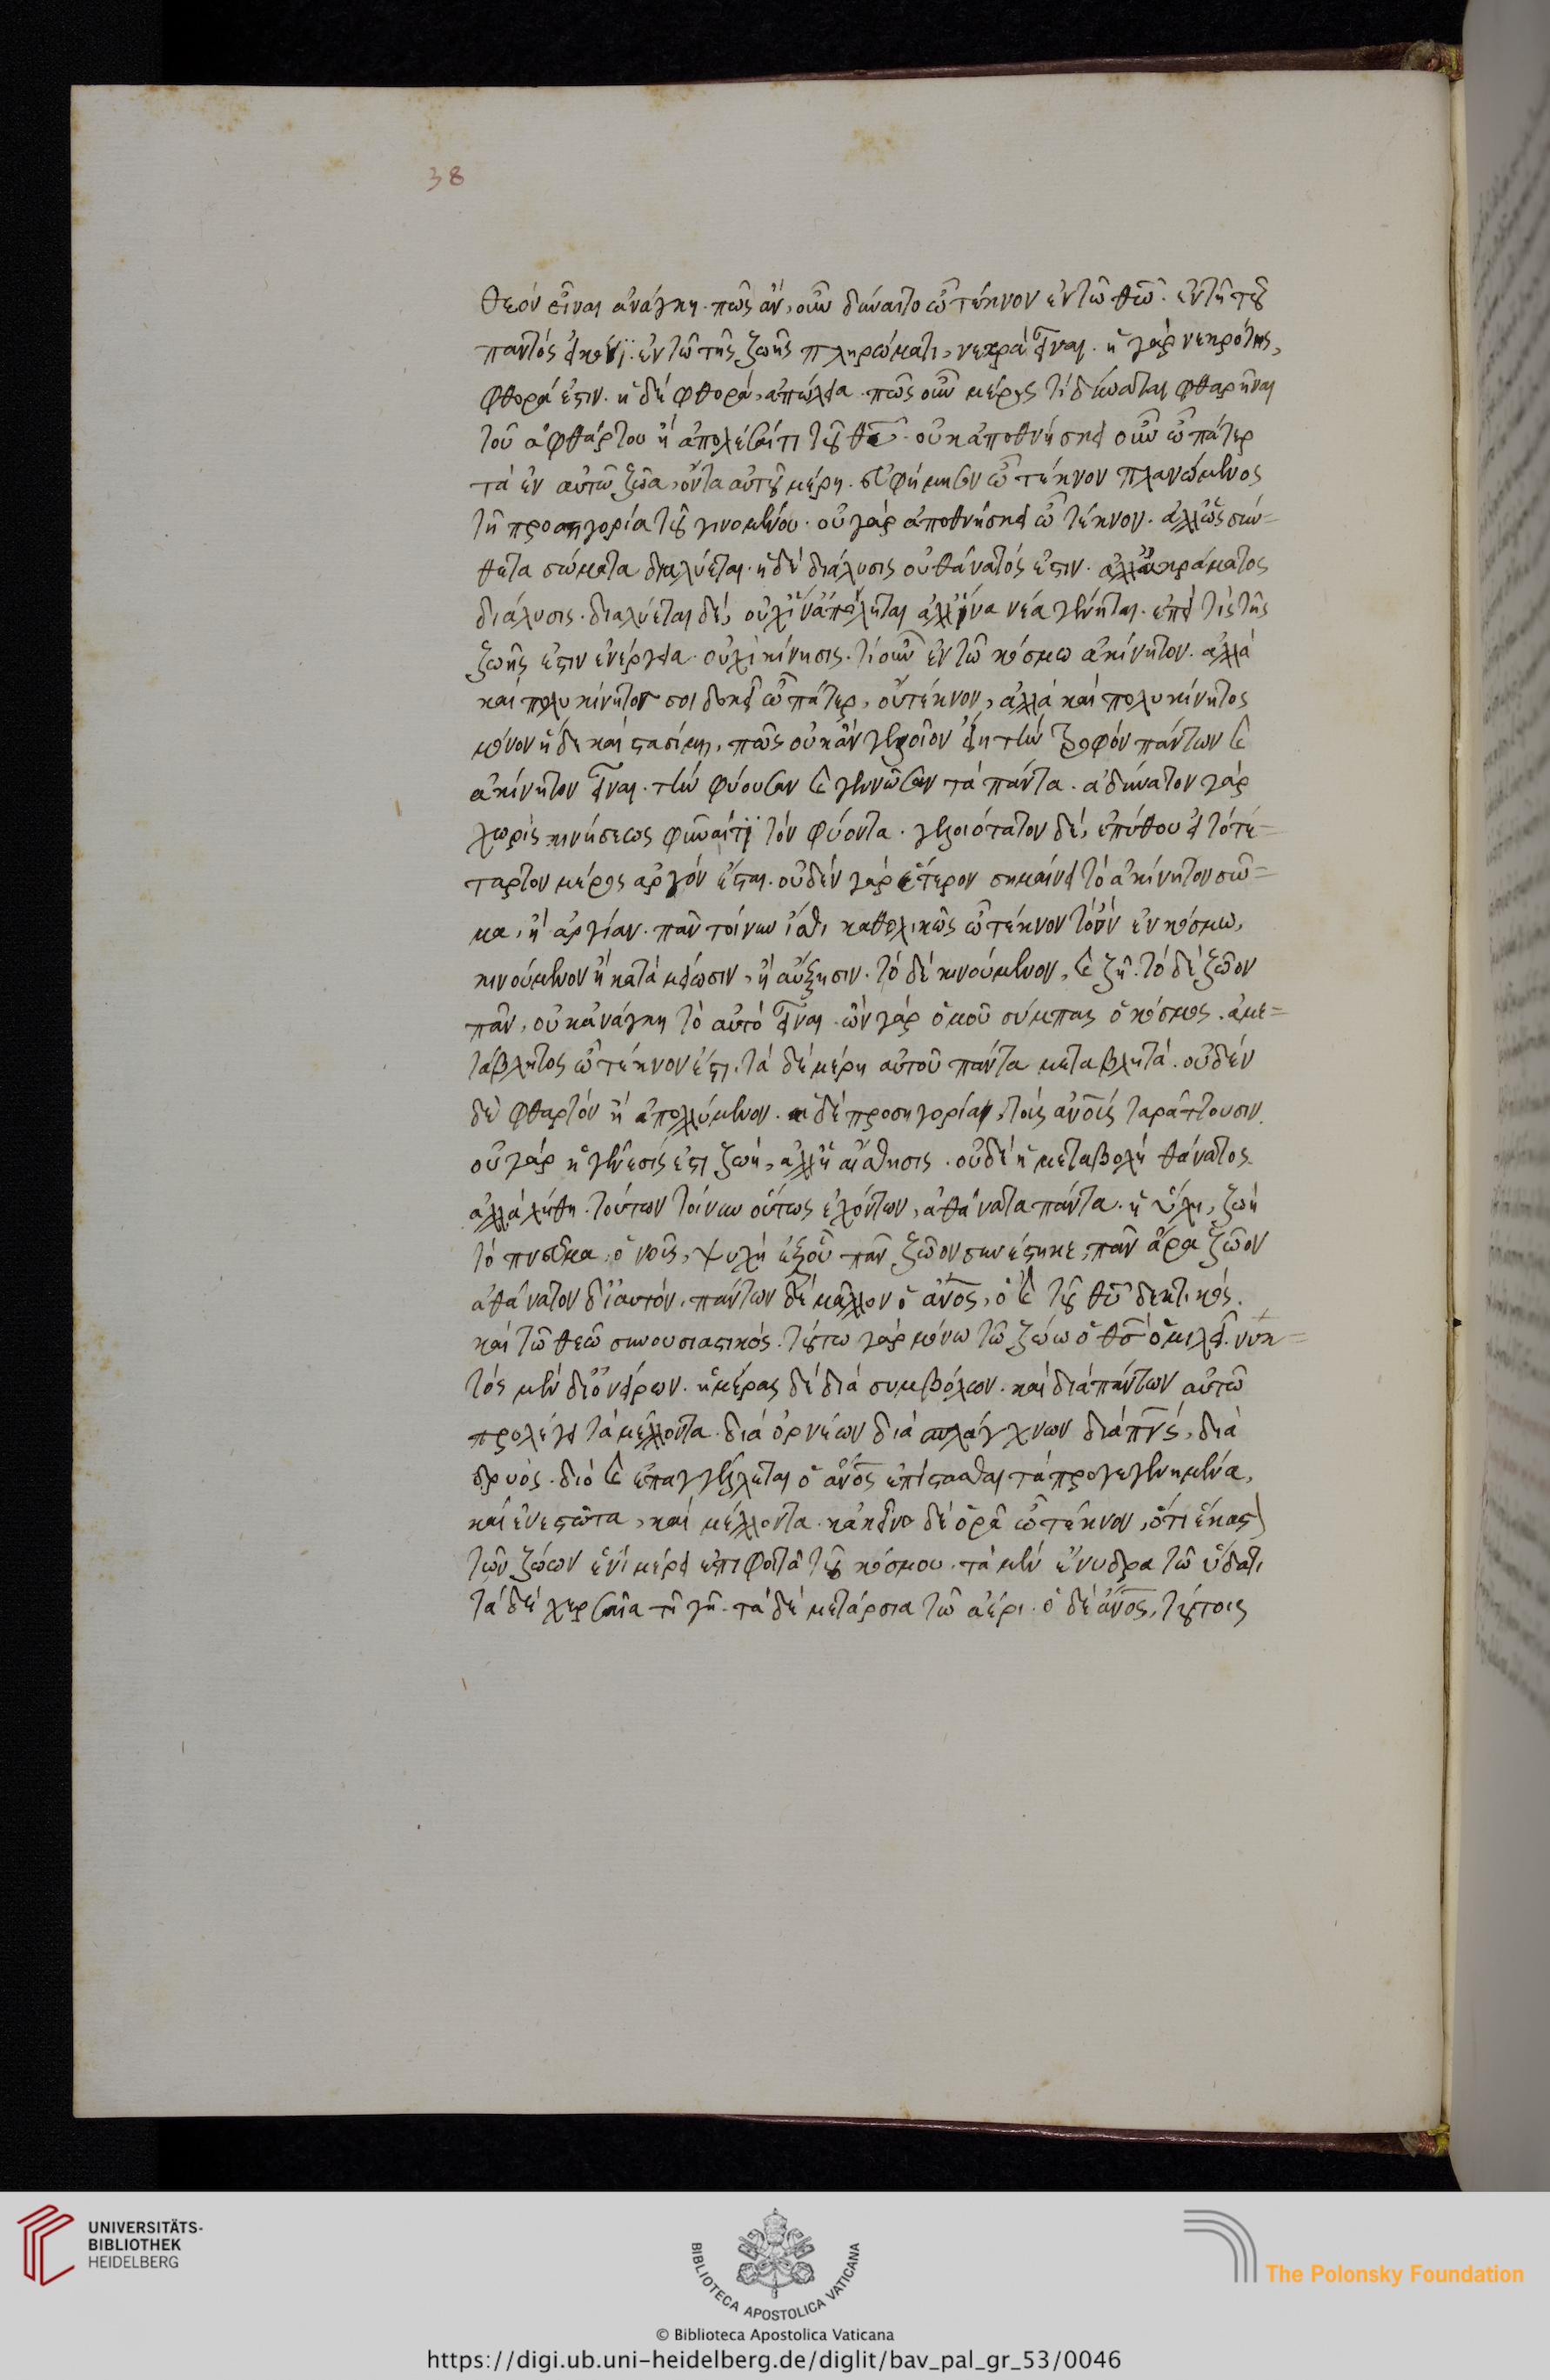 38
θεόν εἶναι ἀνάγκη. πῶς ἄν, οὖν δύναιτο ὦ τέκνον ἐν τῶ θῶ. ἐν τῆ τοῦ
παντός εἰκόνϊ. ἐν τῶ τῆς ζωῆς πληρώματι, νεκρά εἶναι. ἡ γάρ νεκρότης,
φθορά ἐστιν. ἡ δέ φθορά, ἀπώλεια. πῶς οὖν μέρος τί δύναται φθαρῆναι
τοῦ ἀφθάρτου ἤ ἀπολέσθαί τι τοῦ θῦ. οὐκ ἀποθνήσκει οὖν ὦ πάτερ
τά ἐν αὐτῶ ζῶα, ὄντα αὐτοῦ μέρη. εὐφήμησον ὦ τέκνον πλανώμενος
τῆ προσηγορία τοῦ γινομένου. οὐ γάρ ἀποθνήσκει ὦ τέκνον. ἀλλ' ὡς σύν=
θετα σώματα διαλύεται. ἡ δέ διάλυσις οὐ θάνατός ἐστιν. ἀλλὰ κράματος
διάλυσις. διαλύεται δέ, οὐχ ἵνα ἀπόληται ἀλλ' ἵνα νέα γένηται. ἐπεί τίς τῆς
ζωῆς ἐστιν ἐνέργεια. οὐχί κίνησις. τί οὖν ἐν τῶ κόσμω ἀκίνητον. ἀλλά
καί πολυκίνητον σοι δοκεῖ ὦ πάτερ, οὔ τέκνον, ἀλλά καί πολυκίνητος
μόνον ἥδε καί στασίμη, πῶς οὐκ ἄν γελοῖον εἴη τήν τροφόν πάντων καί
ἀκίνητον εἶναι. τήν φύουσαν καί γεννῶσαν τά πάντα. ἀδύνατον γάρ
χωρίς κινήσεως φῦναί τϊ τόν φύοντα. γελοιότατον δέ, ἐπύθου εἰ τό τέ=
ταρτον μέρος ἀργόν ἔσται. οὐδέν γάρ ἕτερον σημαίνει τό ἀκίνητον σῶ=
μα, ἤ ἀργίαν. πᾶν τοίνυν ἴσθι καθολικῶς ὦ τέκνον τό ὄν ἐν κόσμω,
κινούμενον ἤ κατά μείωσιν, ἤ αὔξησιν. τό δέ κινούμενον, καί ζῆ. τό δέ ζῶον
πᾶν, οὐκ ἀνάγκη τό αὐτό εἶναι. ὤν γάρ ὁμοῦ σύμπας ὁ κόσμος. ἀμε=
τάβλητος ὦ τέκνον ἐστι. τά δέ μέρη αὐτοῦ πάντα μεταβλητά. οὐδέν
δέ φθαρτόν ἤ ἀπολλύμενον. αἱ δέ προσηγορίαι, τούς ἀνούς ταράττουσιν.
οὐ γάρ ἡ γένεσίς ἐστι ζωή, ἀλλ' ἡ αἴσθησις. οὐδέ ἡ μεταβολή θάνατος.
ἀλλά λήθη. τούτων τοίνυν οὕτως ἐχόντων, ἀθάνατα πάντα. ἡ ὕλη, ζωή
τό πνεῦμα, ὁ νοῦς, ψυχή ἐξ οὗ πᾶν ζῶον συνέστηκε, πᾶν ἄρα ζῶον
ἀθάνατον δι' αὐτόν, πάντων δέ μᾶλλον ὁ ἄνος, ὁ καί τοῦ θῦ δεκτικός.
καί τῶ θεῶ συνουσιαστικός. τούτω γάρ μόνω τῶ ζώω ὁ θσ ὁμιλεῖ. νυκ=
τός μέν δι' ὀνείρων. ἡμέρας δέ διά συμβόλων. καί διά πάντων αὐτῶ
προλέγει τά μέλλοντα. διά ὀρνέων διά σπλάγχνων διά πνς, διά
δρυός. διό καί ἐπαγγέλλεται ὁ ἄνος ἐπίστασθαι τά προγεγενημένα,
καί ἐνεστῶτα, καί μέλλοντα. κἀκεῖνο δέ ὅρα ὦ τέκνον, ὅτι ἕκαστ
τῶν ζώων ἑνί μέρει ἐπιφοιτᾶ τοῦ κόσμου. τά μέν ἔνυδρα τῶ ὕδατι
τά δέ χερσαῖα τῆ γῆ. τά δέ μετάρσια τῶ ἀέρι. ὁ δέ ἄνος, τούτοις
UNIVERSITÄTS-
BIBLIOTHEK
HEIDELBERG
BIBLIOTECA APOSTOLICA VATICANA
The Polonsky Foundation
© Biblioteca Apostolica Vaticana
https://digi.ub.uni-heidelberg.de/diglit/bav_pal_gr_53/0046